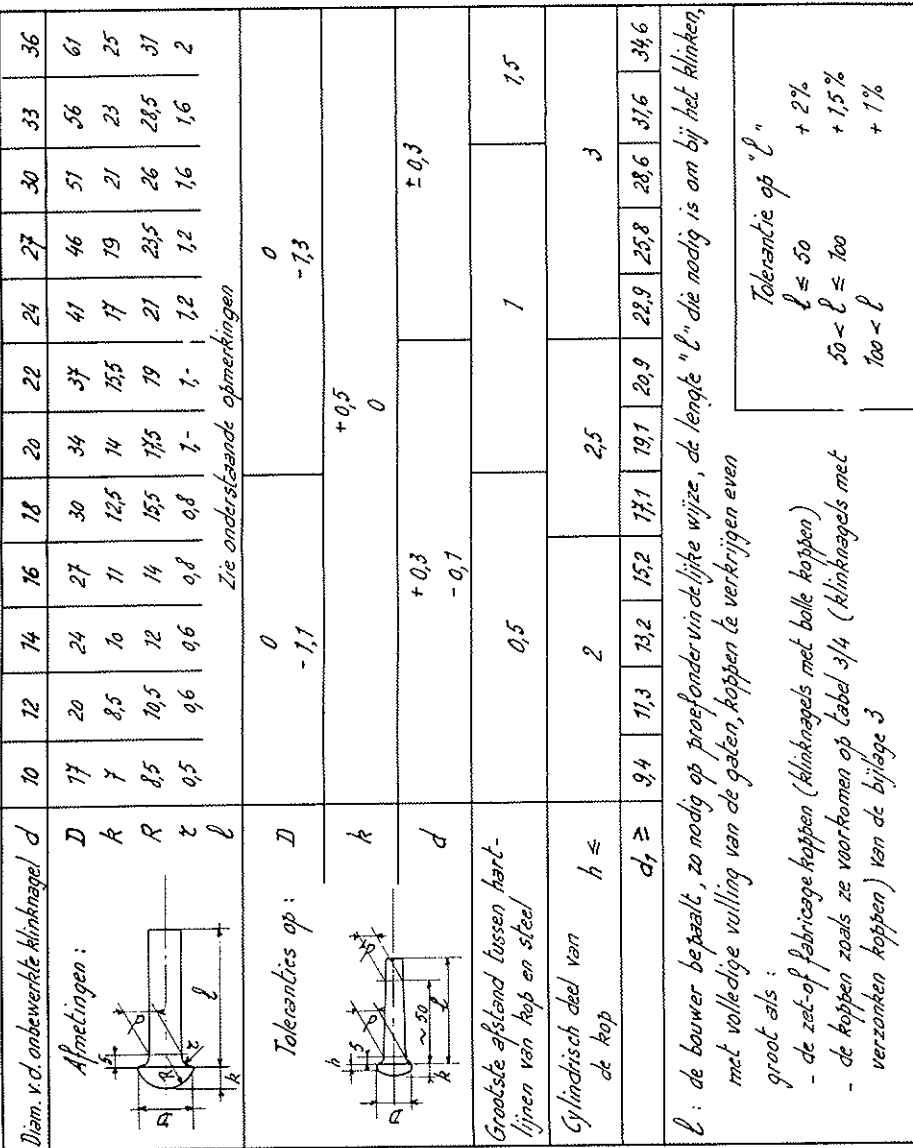 Diam. v.d. onbewerkte klinknagel d 10 12 14 16 18 20 22 24 27 30 33 36
Afmetingen :
D 17 20 24 27 30 34 37 41 46 51 56 61
k 7 8,5 10 11 12,5 14 15,5 17 19 21 23 25
R 8,5 10,5 12 14 15,5 17,5 19 21 23,5 26 28,5 31
r 0,5 0,6 0,6 0,8 0,8 1,- 1,- 1,2 1,2 1,6 1,6 2
l Zie onderstaande opmerkingen
D R d 5 r k l
Toleranties op :
D 0 -1,1 0 -1,3
k +0,5 0
d +0,3 -0,1 ± 0,3
h 5 d d1 D k ~50 l
Grootste afstand tussen hart-
lijnen van kop en steel 0,5 1 1,5
Cylindrisch deel van
de kop h ≤ 2 2,5 3
d1 ≥ 9,4 11,3 13,2 15,2 17,1 19,1 20,9 22,9 25,8 28,6 31,6 34,6
l : de bouwer bepaalt, zo nodig op proefondervindelijke wijze, de lengte "l" die nodig is om bij het klinken,
met volledige vulling van de gaten, koppen te verkrijgen even
groot als :
- de zet-of fabricage koppen (klinknagels met bolle koppen)
- de koppen zoals ze voorkomen op tabel 3/4 (klinknagels met
verzonken koppen) van de bijlage 3
Tolerantie op "l"
l ≤ 50 + 2%
50 < l ≤ 100 + 1,5%
100 < l + 1%